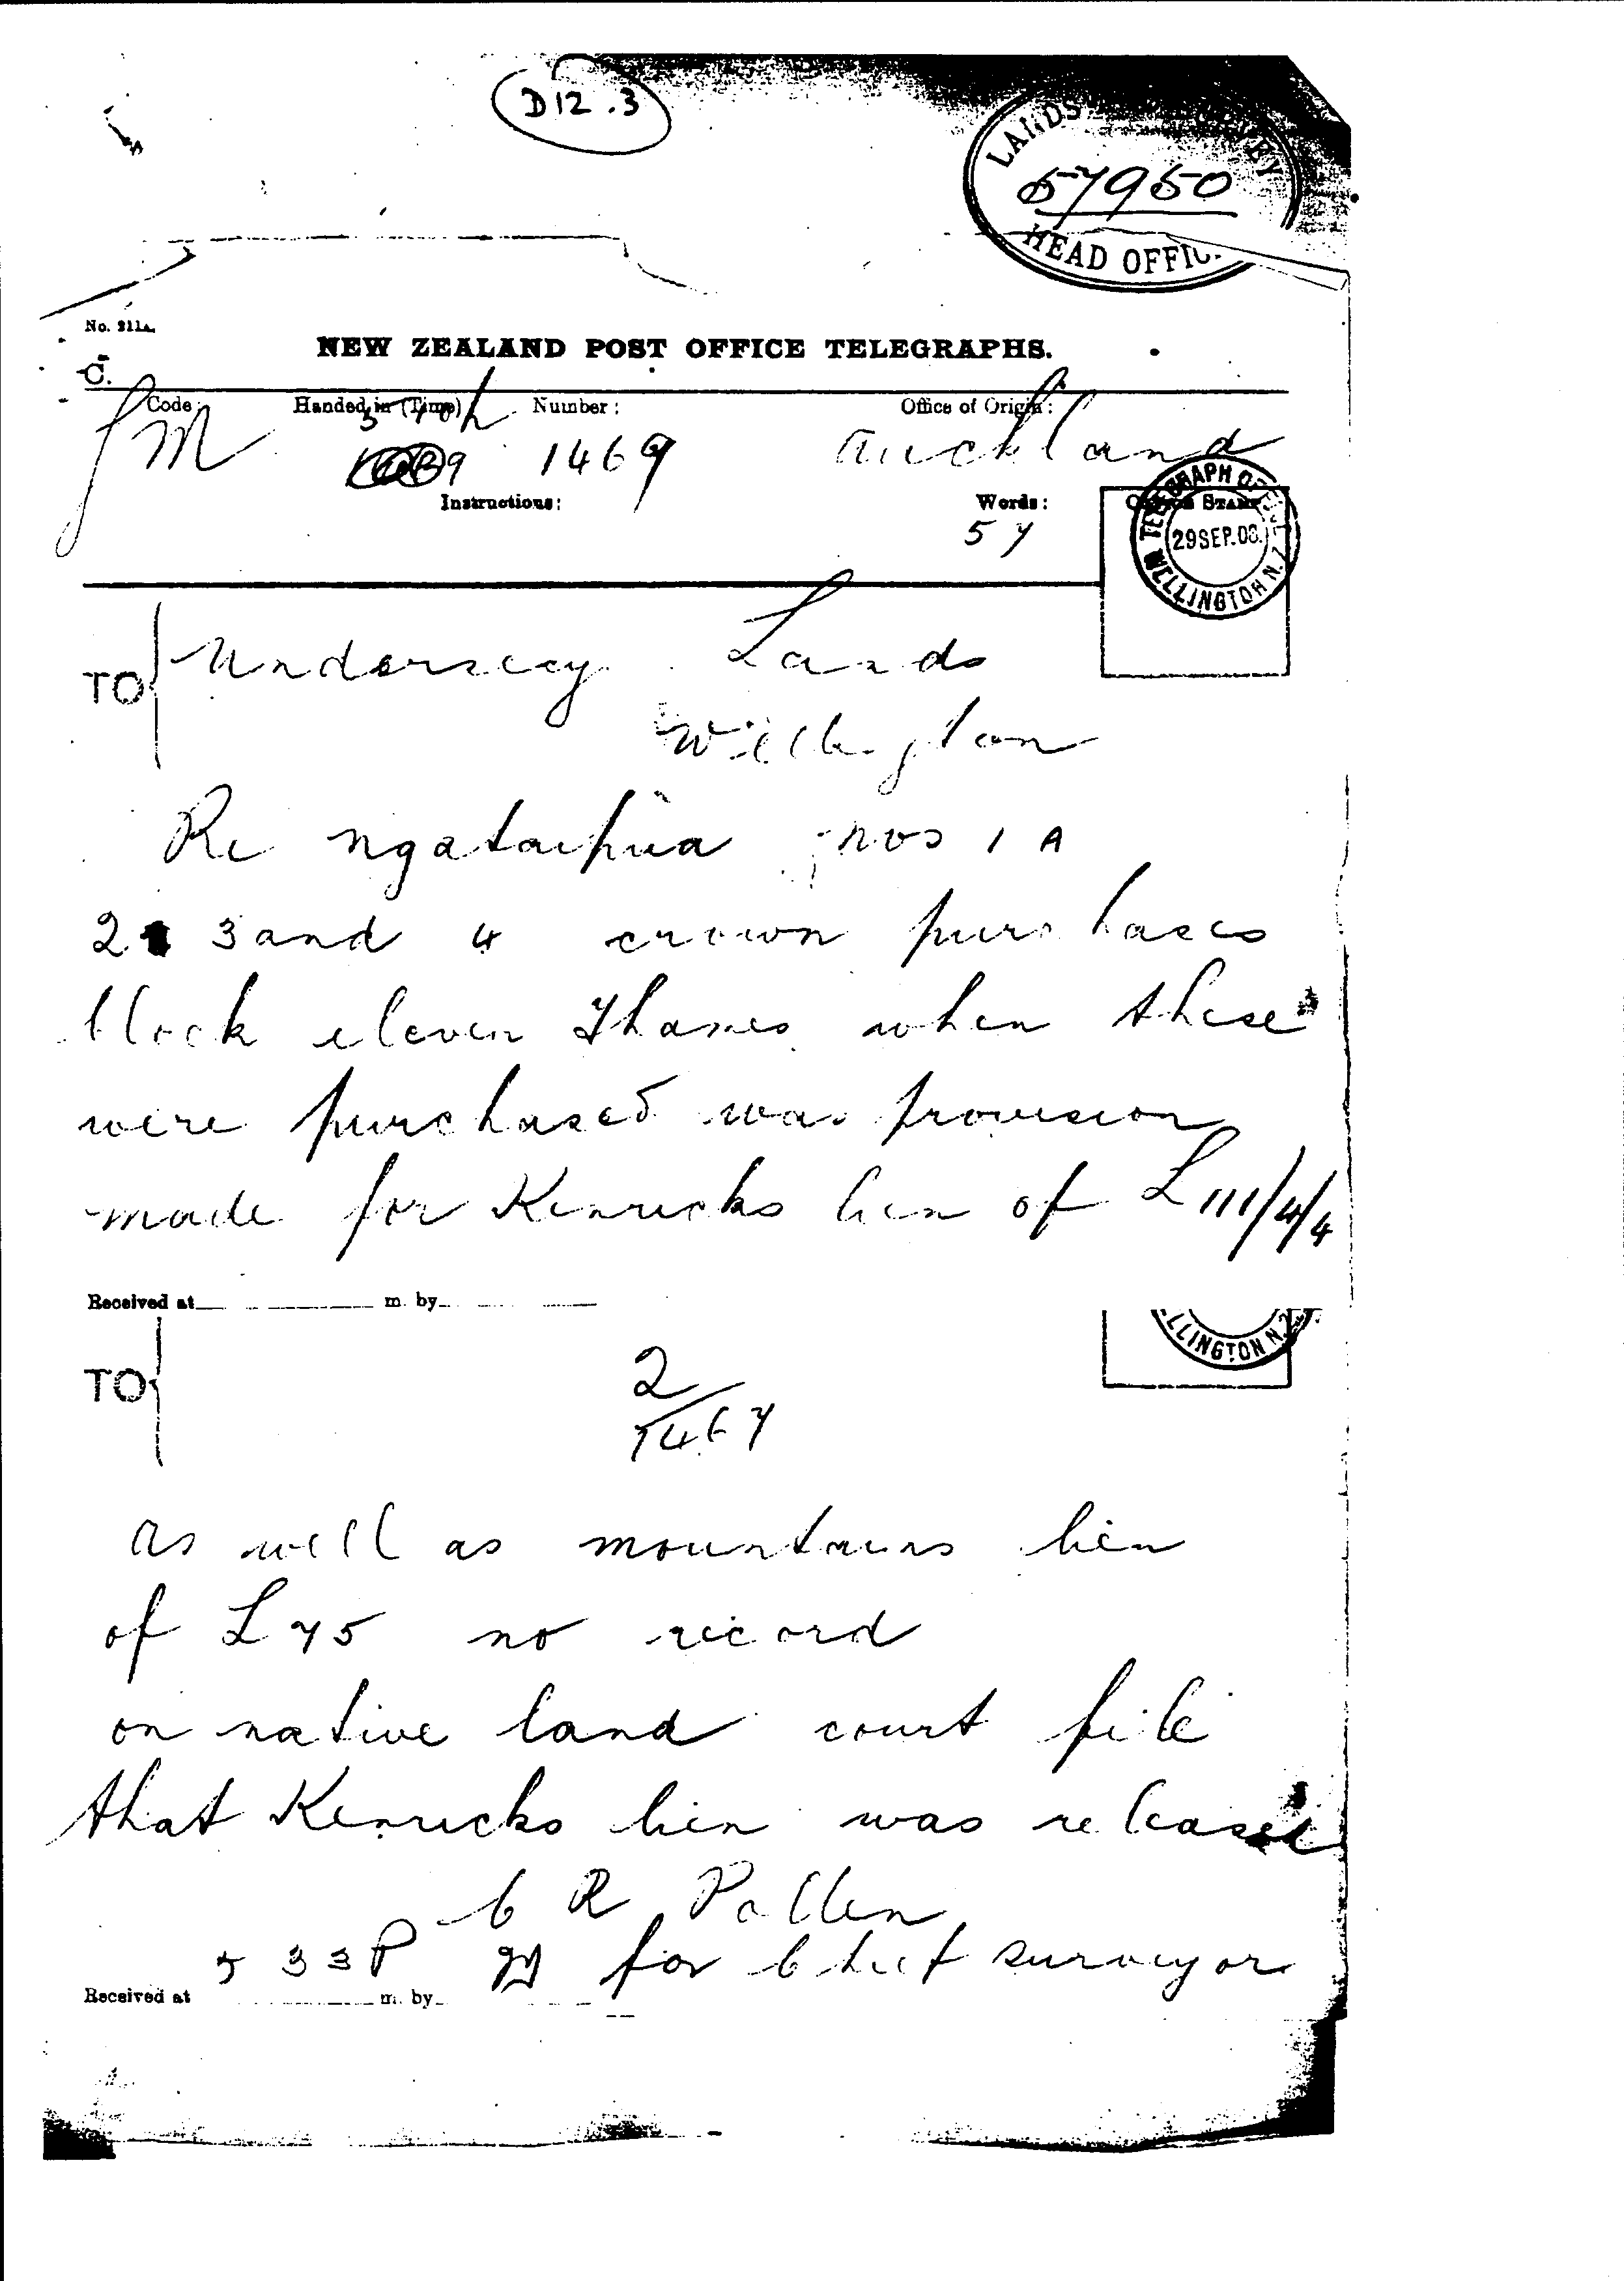 D12.3
LANDS
57950
HEAD OFFIC
No. 211A.
NEW ZEALAND POST OFFICE TELEGRAPHS.
C.
Code: Handed in (Time) Number: Office of Origin:
1469 Auckland
Instructions: Words: Office Stamp
57
TELEGRAPH OFFICE
29 SEP. 08.
WELLINGTON N.Z
TO Undersecy Lands
Wellington
Re ngataipua nos 1 A
2 3 and 4 crown purchases
block eleven Thames when these
were purchased was provision
made for Kenricks lien of £111/4/4
Received at m. by
LLINGTON N.Z
TO
2
1467
as well as mountains lien
of £75 no record
on native land court file
that Kenricks lien was release
C R Pollen
5 33P for Chief surveyor
Received at m. by